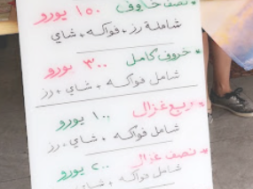 نصف خاروف ١٥٠ يورو
شاملة رز + فواكه + شاي
* خروف كامل ٣٠٠ يورو
شامل فواكه + شاي + رز
* ربع غزال ١٠٠ يورو
شامل فواكه + شاي + رز
* نصف غزال ٢٠٠ يورو
شامل فواكه + شاي